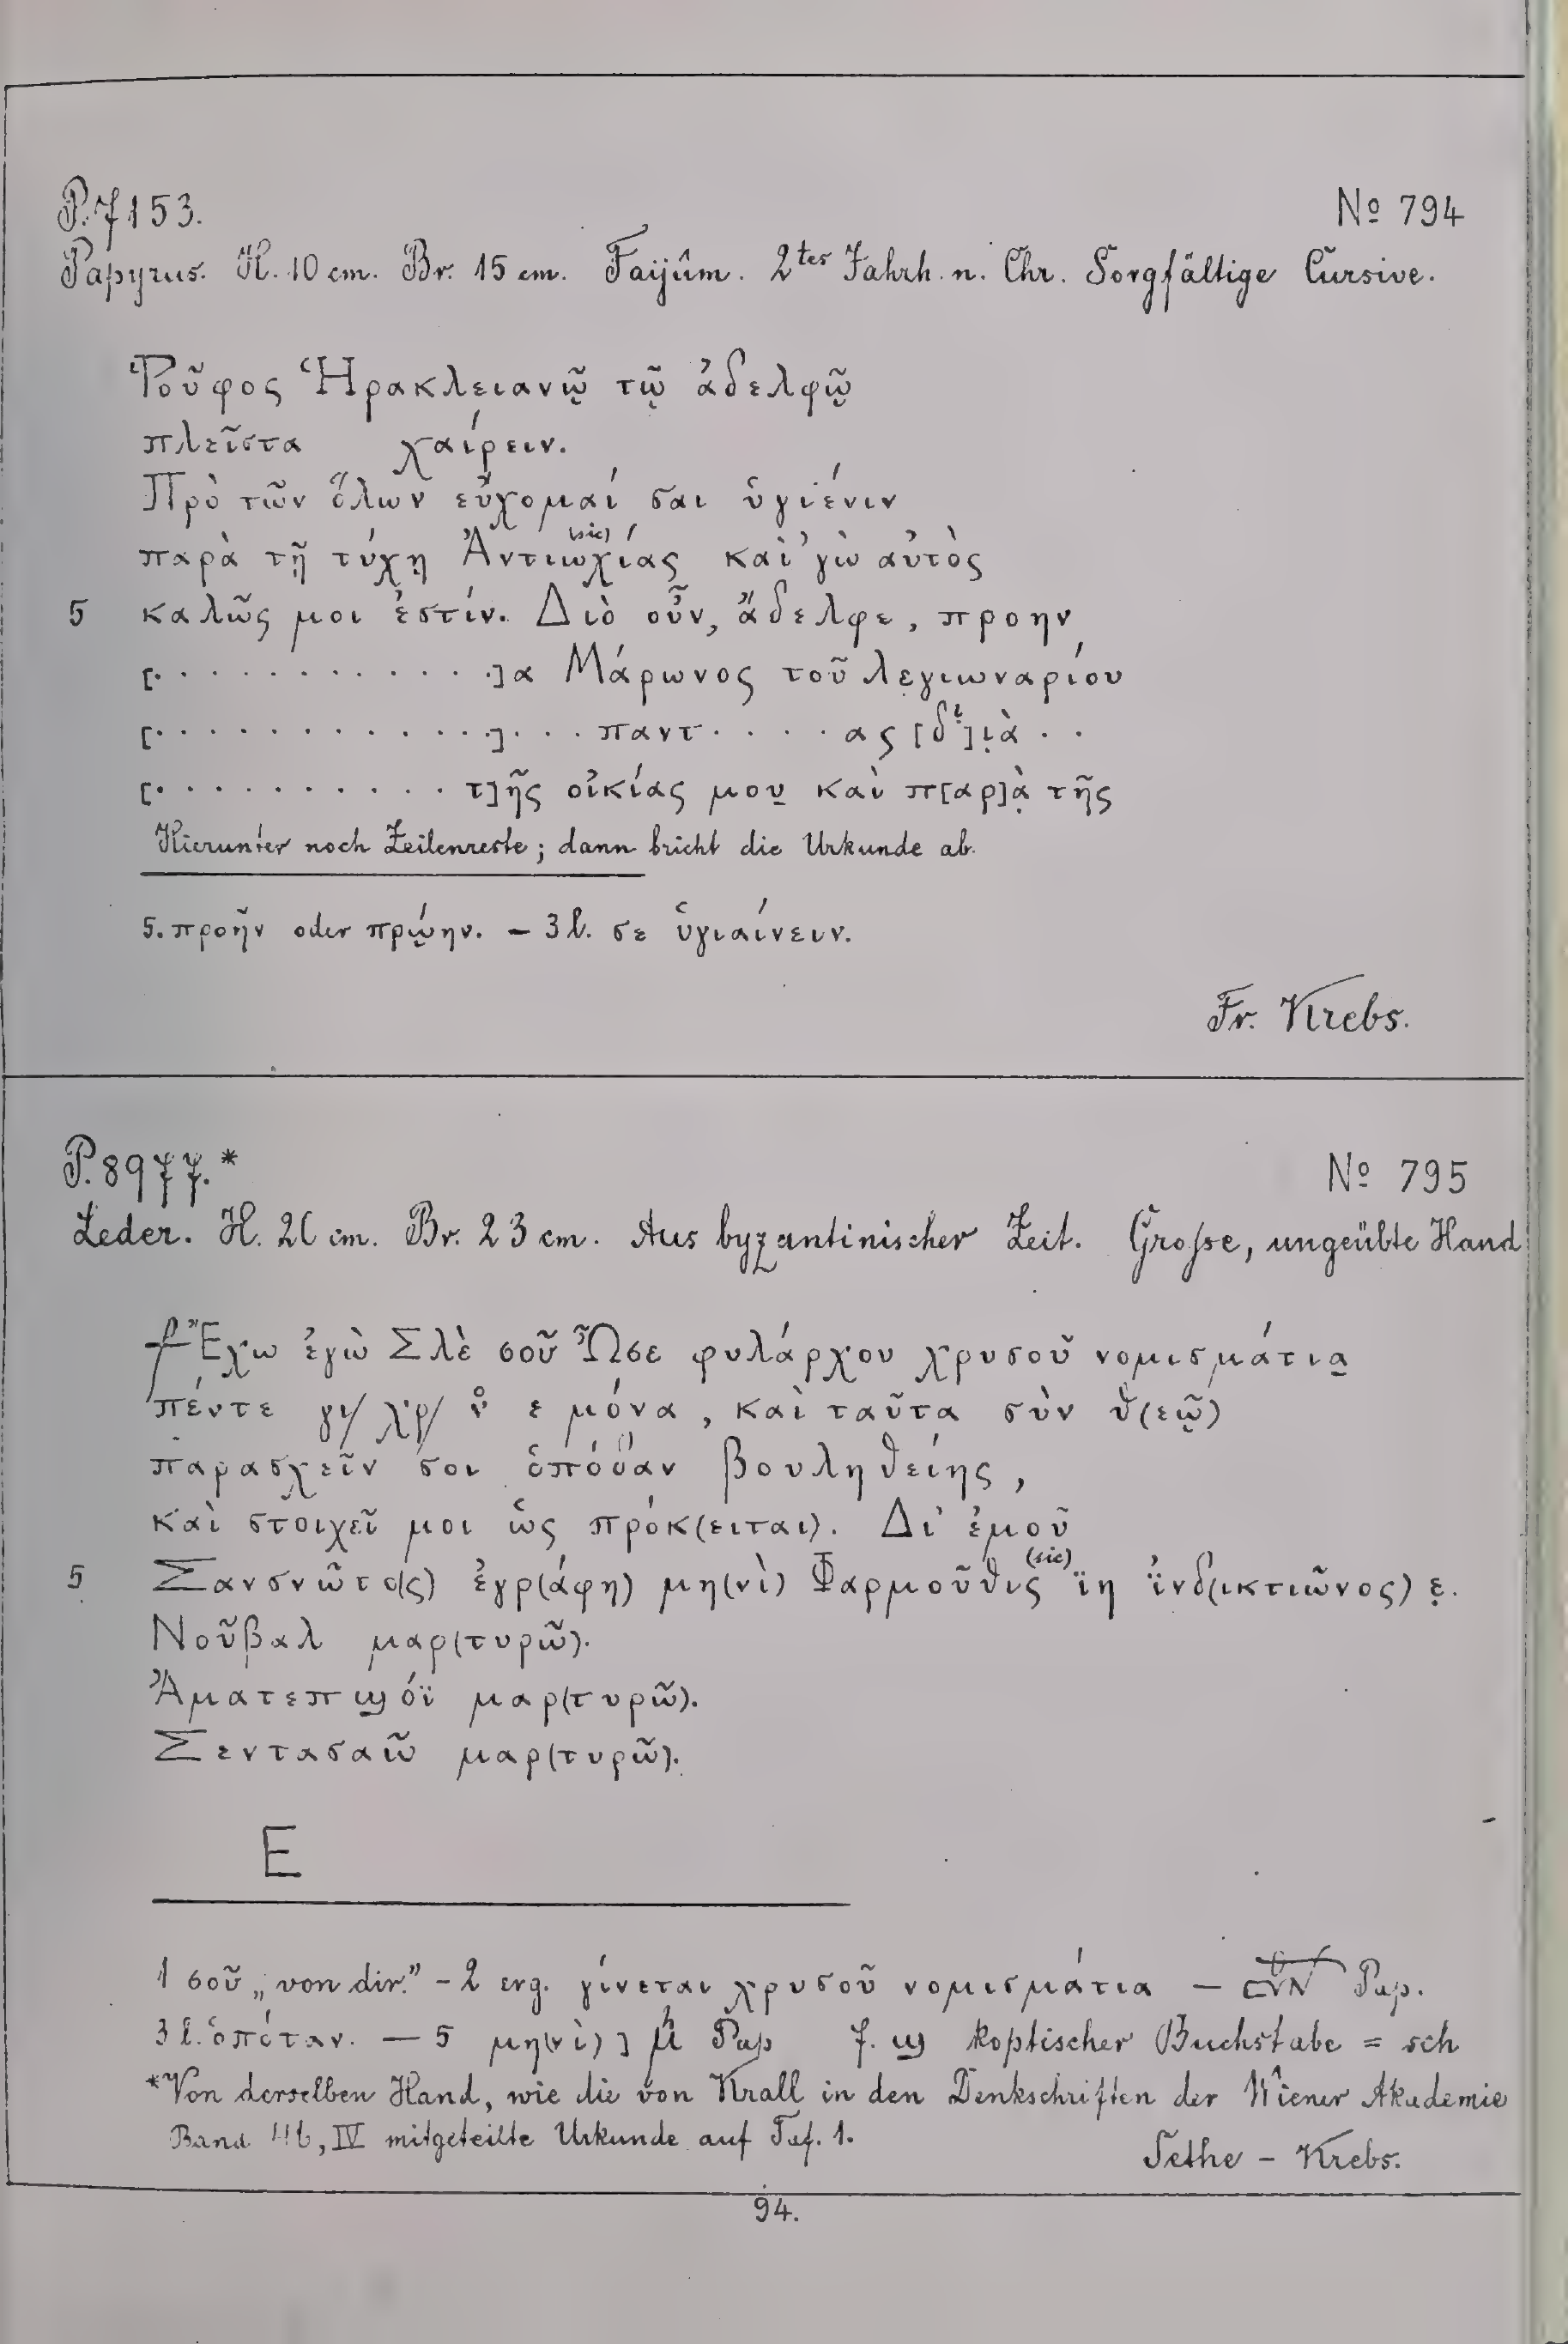 P. 7153. No 794
Papyrus. H. 10 cm. Br. 15 cm. Faijûm. 2tes Jahrh. n. Chr. Sorgfältige Cursive.
Ῥοῦφος Ἡρακλειανῷ τῷ ἀδελφῷ
πλεῖστα χαίρειν.
Πρὸ τῶν ὅλων εὔχομαί σαι ὑγιένιν
παρὰ τῇ τύχῃ Ἀντιωχίας (sic) καὶ ’γὼ αὐτὸς
5 καλῶς μοι ἐστίν. Διὸ οὖν, ἄδελφε, προην
[. . . . . . . . . . . . .]α Μάρωνος τοῦ λεγιωναρίου
[. . . . . . . . . . . . .]. . . παντ . . . . ας [δ?]ι̣ὰ . .
[. . . . . . . . . . . τ]ῆς οἰκίας μου̣ καὶ π[αρ]ὰ̣ τῆς
Hierunter noch Zeilenreste; dann bricht die Urkunde ab.
5. προῆν oder πρῴην. – 3 l. σε ὑγιαίνειν.
Fr. Krebs.
P. 8977.* No 795
Leder. H. 26 cm. Br. 23 cm. Aus byzantinischer Zeit. Grosse, ungeübte Hand
Ἔχω ἐγὼ Σλὲ σοῦ Ὦσε φυλάρχου χρυσοῦ νομισμάτια̣
πέντε γι/ χρ/ ν̊ ε μόνα, καὶ ταῦτα σὺν θ(εῷ)
παρασχεῖν σοι ὁπόθαν βουληθείης,
καὶ στοιχεῖ μοι ὡς πρόκ(ειται). Δι’ ἐμοῦ
5 Σανσνῶτο(ς) ἐγρ(άφη) μη(νὶ) Φαρμοῦθις (sic) ϊη ϊνδ(ικτιῶνος) ε̣.
Νοῦβαλ μαρ(τυρῶ).
Ἀματεπϣόϊ μαρ(τυρῶ).
Σεντασαῶ μαρ(τυρῶ).
E
1 σοῦ „von dir.” – 2 erg. γίνεται χρυσοῦ νομισμάτια – Pap.
3 l. ὁπόταν. – 5 μη(νὶ)] Pap 7. ϣ koptischer Buchstabe = sch
*Von derselben Hand, wie die von Krall in den Denkschriften der Wiener Akademie
Band 46, IV mitgeteilte Urkunde auf Taf. 1.
Sethe – Krebs.
94.